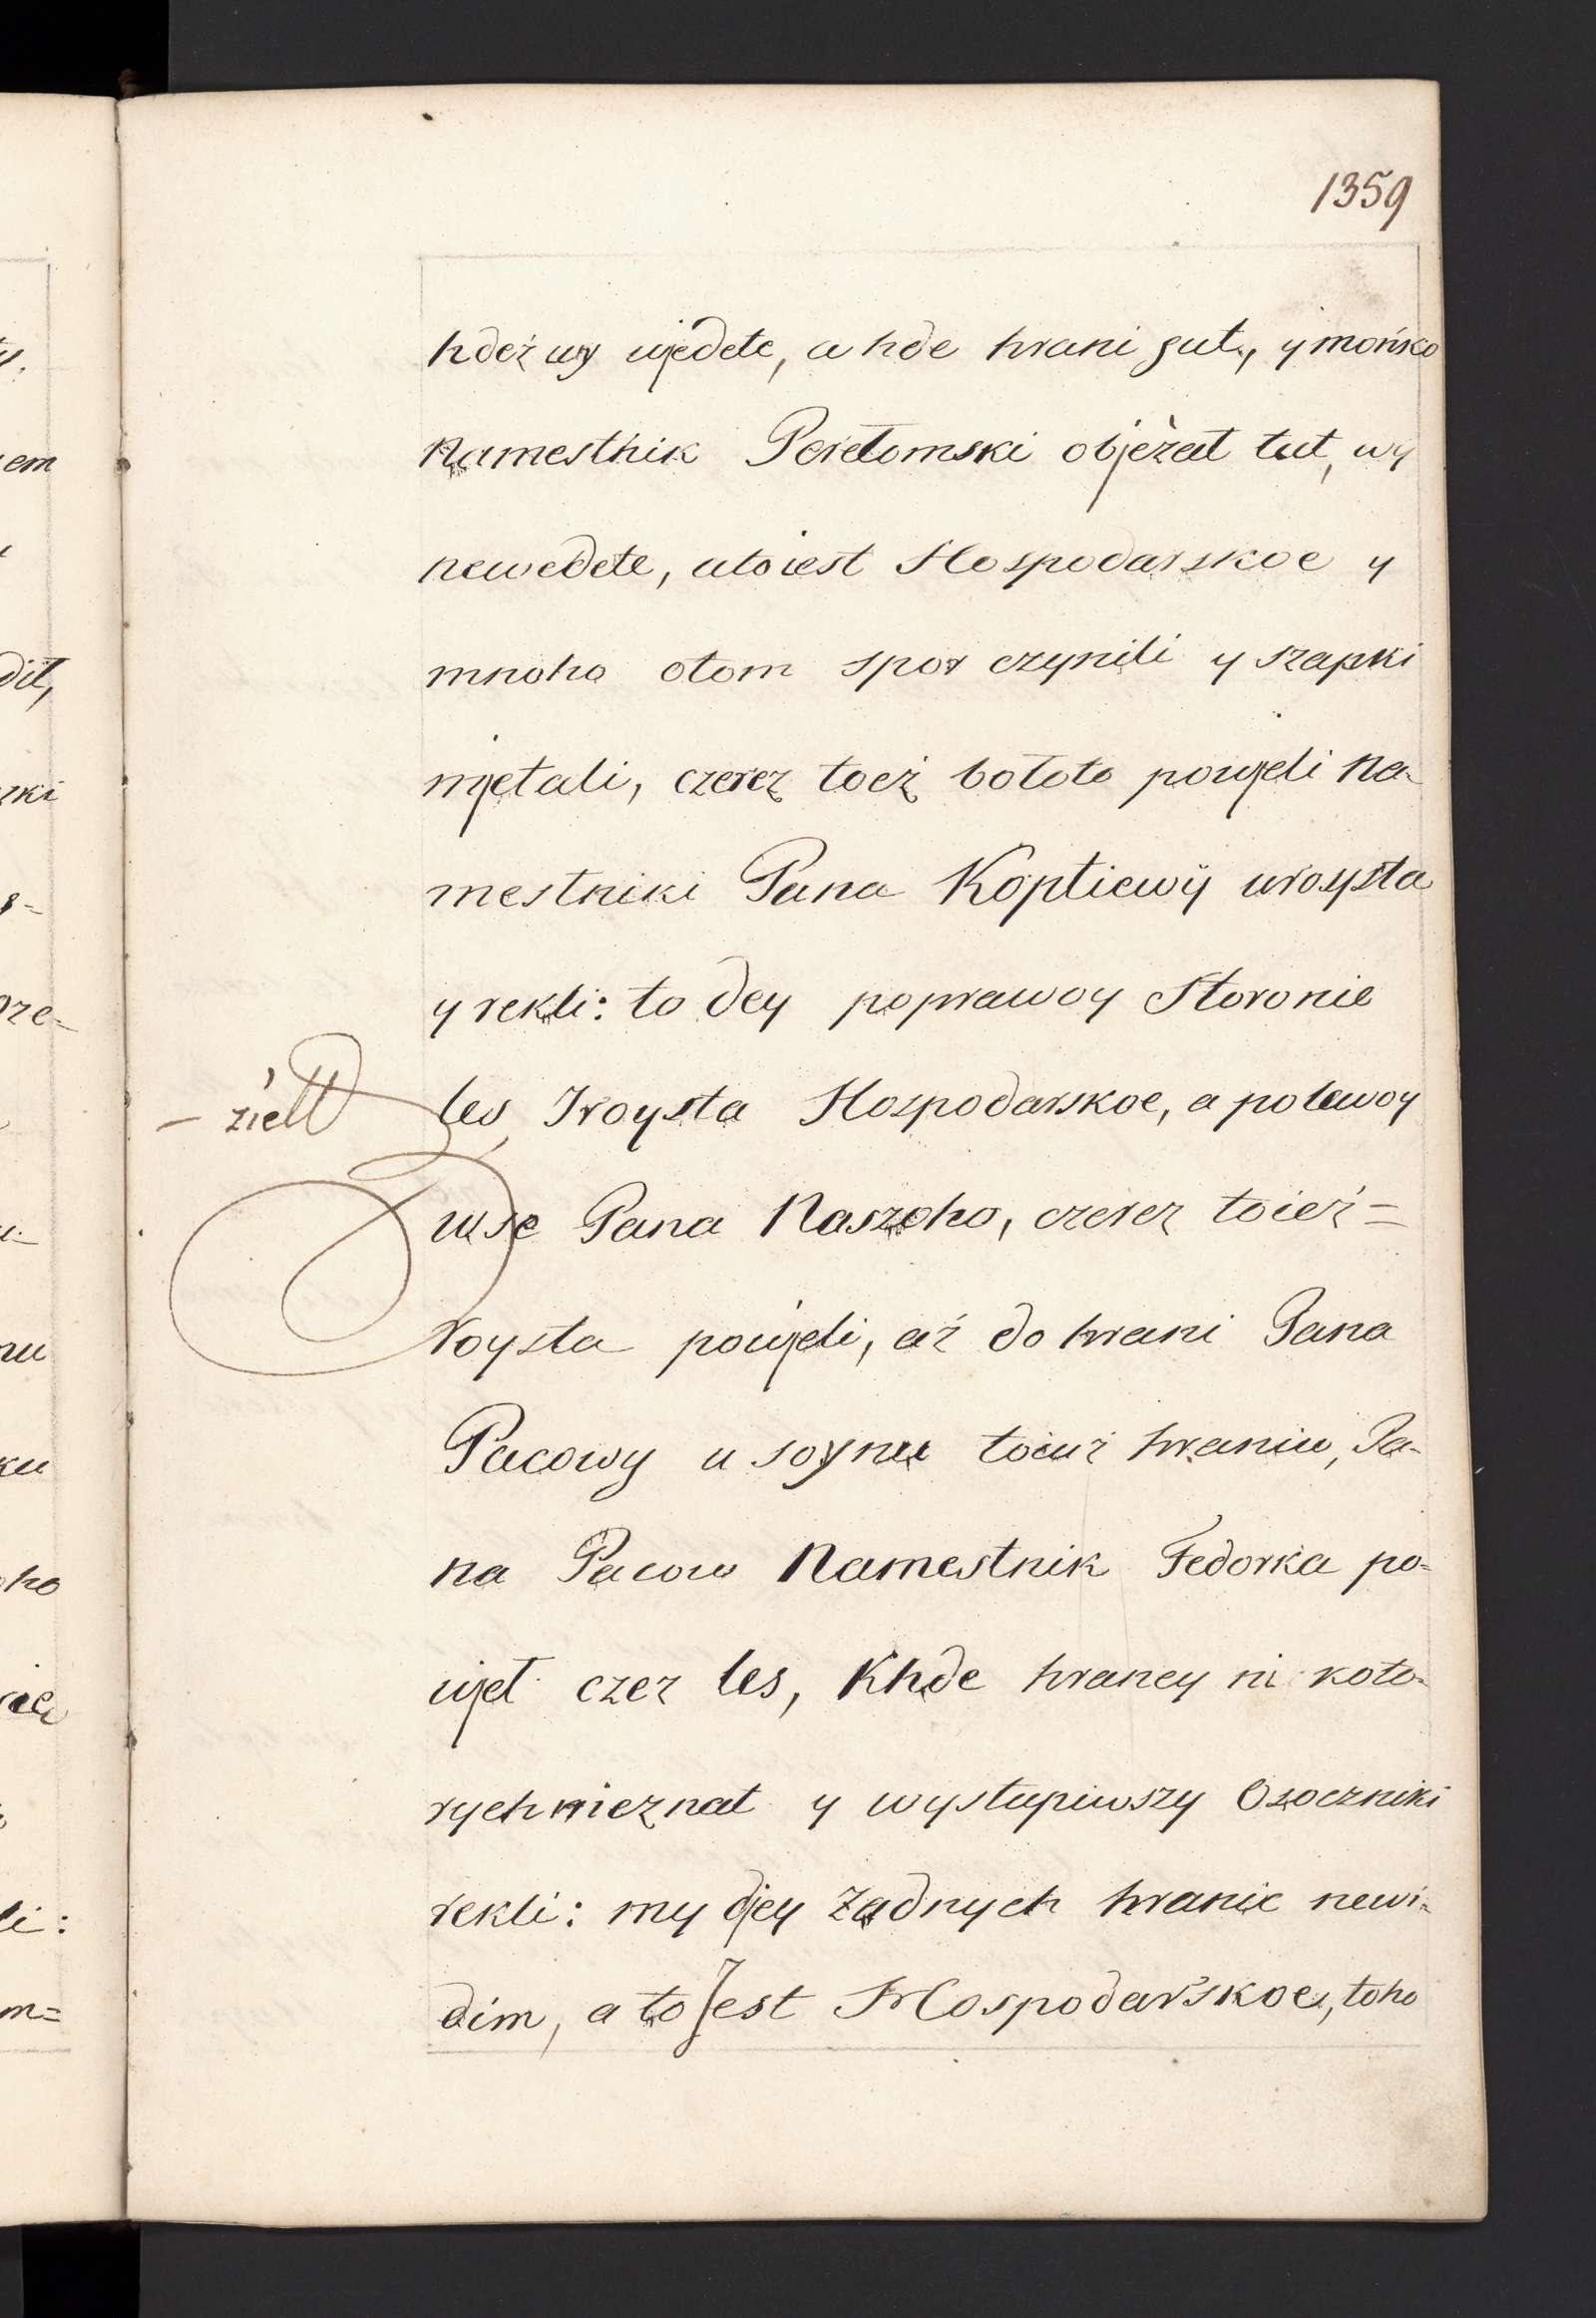 1359
hdeż wy wjedete, a hde hrani sut, y mońko
Namestnik Perełomski objeżał tut, wy
newedete, ato iest Hospodarskoe y
mnoho otom spor czynili y szapki
mjetali, czerez toeż bołoto powjeli na-
mestniki Pana Koptiewÿ wroysta
y rekli: to dey poprawoy Storonie
les Iroysta Hospodarskoe, a polewoy
wse Pana Naszoho, czerez toież=
roysta powjeli, aż do hrani Pana
Pacowy u soynu toiuż hraniu, Pa-
na Pacow Namestnik Fedorka po-
wjeł czez les, Khde hraney ni koto-
rych nieznał y wystupiwszy Osoczniki
rekli: my djey żadnych hranic newi-
dim, a to Jest Hospodarskoe, toho